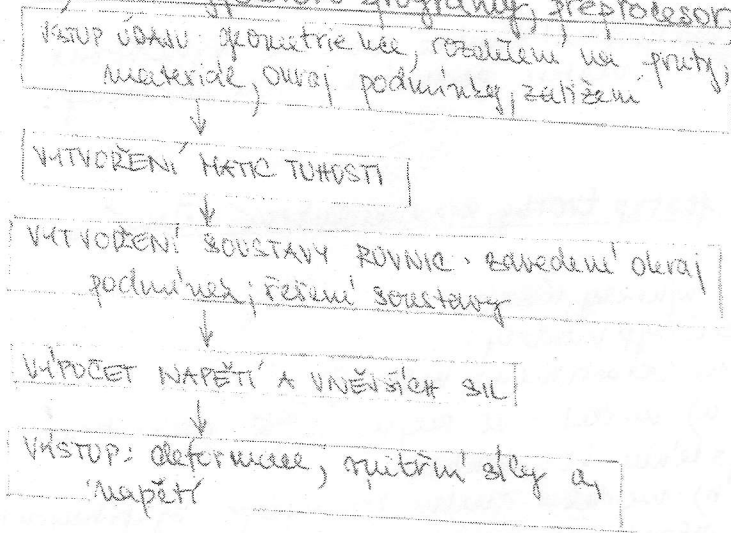 programy, preprocesor
VSTUP ÚDAJŮ: geometrie kce, rozdělení na pruty,
materiál, okraj podmínky, zatížení
VYTVOŘENÍ MATIC TUHOSTI
VYTVOŘENÍ SOUSTAVY ROVNIC. zavedení okraj
podmínek; řešení soustavy
VÝPOČET NAPĚTÍ A VNĚJŠÍCH SIL
VÝSTUP: deformace, vnitřní síly a
napětí